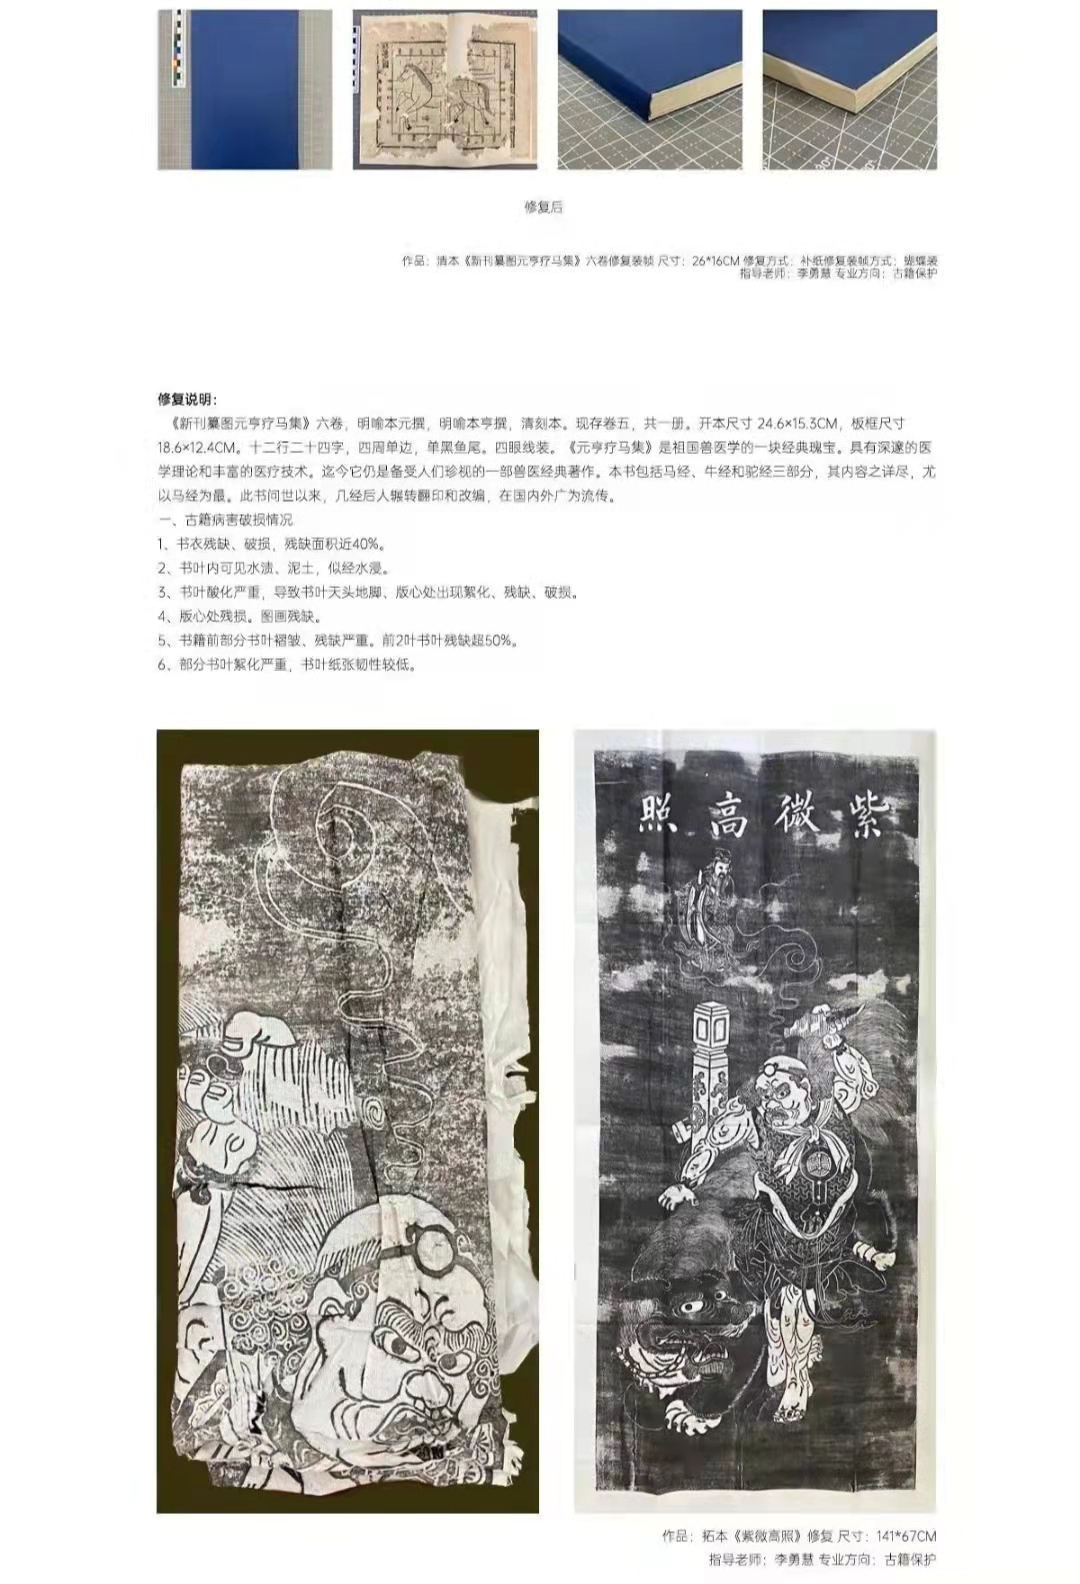 修复后
作品：清本《新刊纂图元亨疗马集》六卷修复装帧 尺寸：26*16CM 修复方式：补纸修复装帧方式：蝴蝶装
指导老师：李勇慧 专业方向：古籍保护
修复说明：
《新刊纂图元亨疗马集》六卷，明喻本元撰，明喻本亨撰，清刻本。现存卷五，共一册。开本尺寸 24.6×15.3CM，板框尺寸
18.6×12.4CM。十二行二十四字，四周单边，单黑鱼尾。四眼线装。《元亨疗马集》是祖国兽医学的一块经典瑰宝。具有深邃的医
学理论和丰富的医疗技术。迄今它仍是备受人们珍视的一部兽医经典著作。本书包括马经、牛经和驼经三部分，其内容之详尽，尤
以马经为最。此书问世以来，几经后人辗转翻印和改编，在国内外广为流传。
一、古籍病害破损情况
1、书衣残缺、破损，残缺面积近40%。
2、书叶内可见水渍、泥土，似经水浸。
3、书叶酸化严重，导致书叶天头地脚、版心处出现絮化、残缺、破损。
4、版心处残损。图画残缺。
5、书籍前部分书叶褶皱、残缺严重。前2叶书叶残缺超50%。
6、部分书叶絮化严重，书叶纸张韧性较低。
照高微紫
作品：拓本《紫微高照》修复 尺寸：141*67CM
指导老师：李勇慧 专业方向：古籍保护